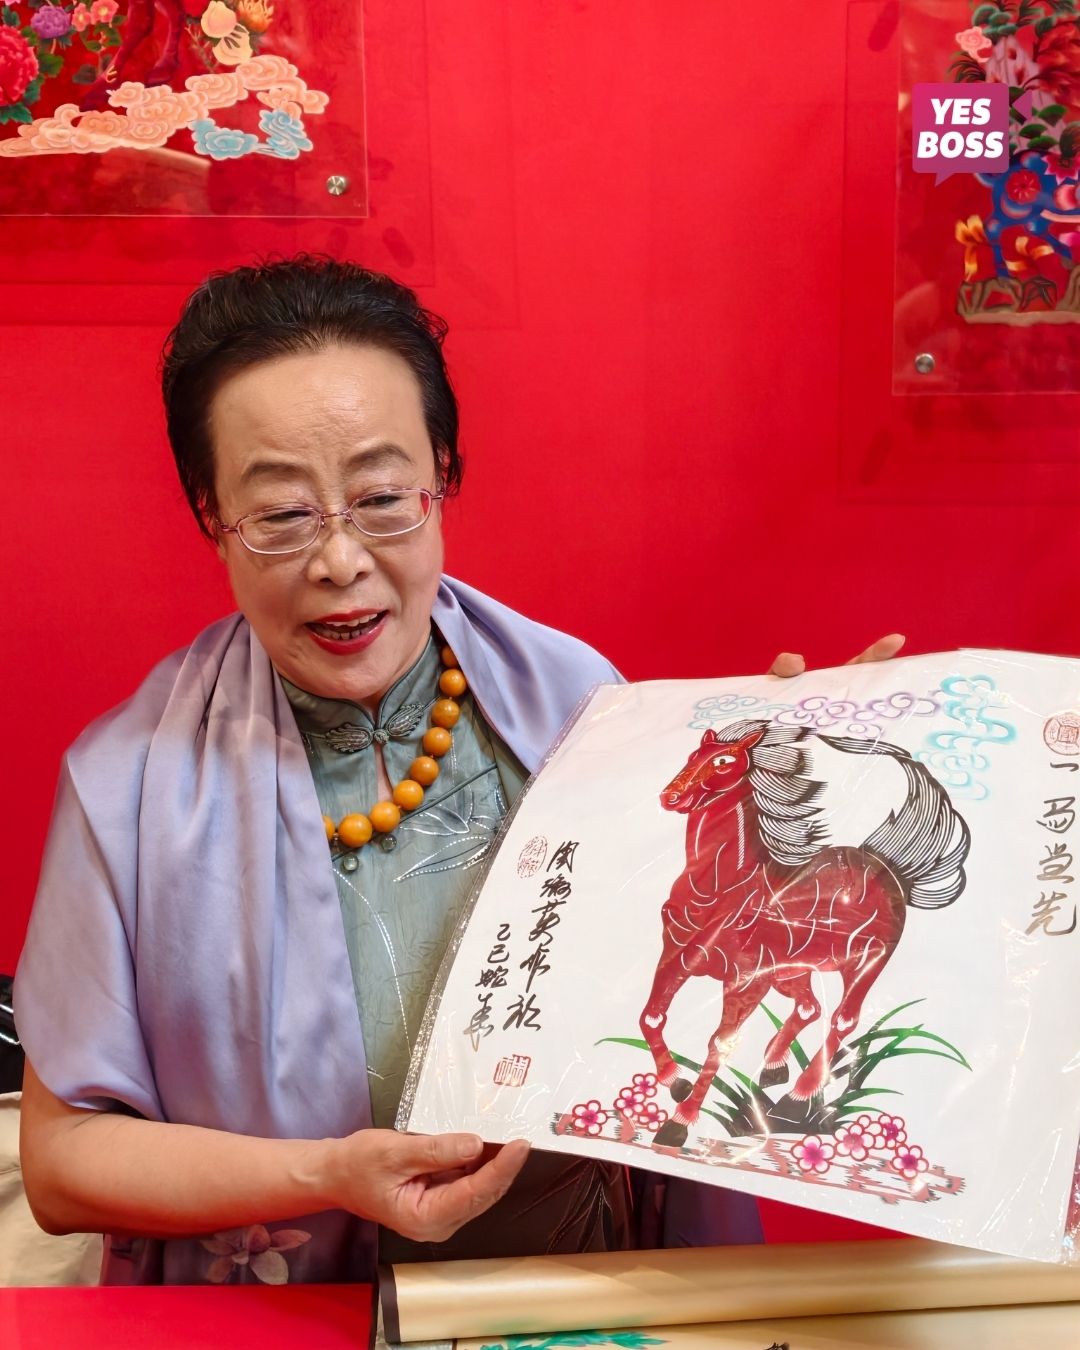 YES
BOSS
一马当先
闵淑英作于
乙巳蛇年